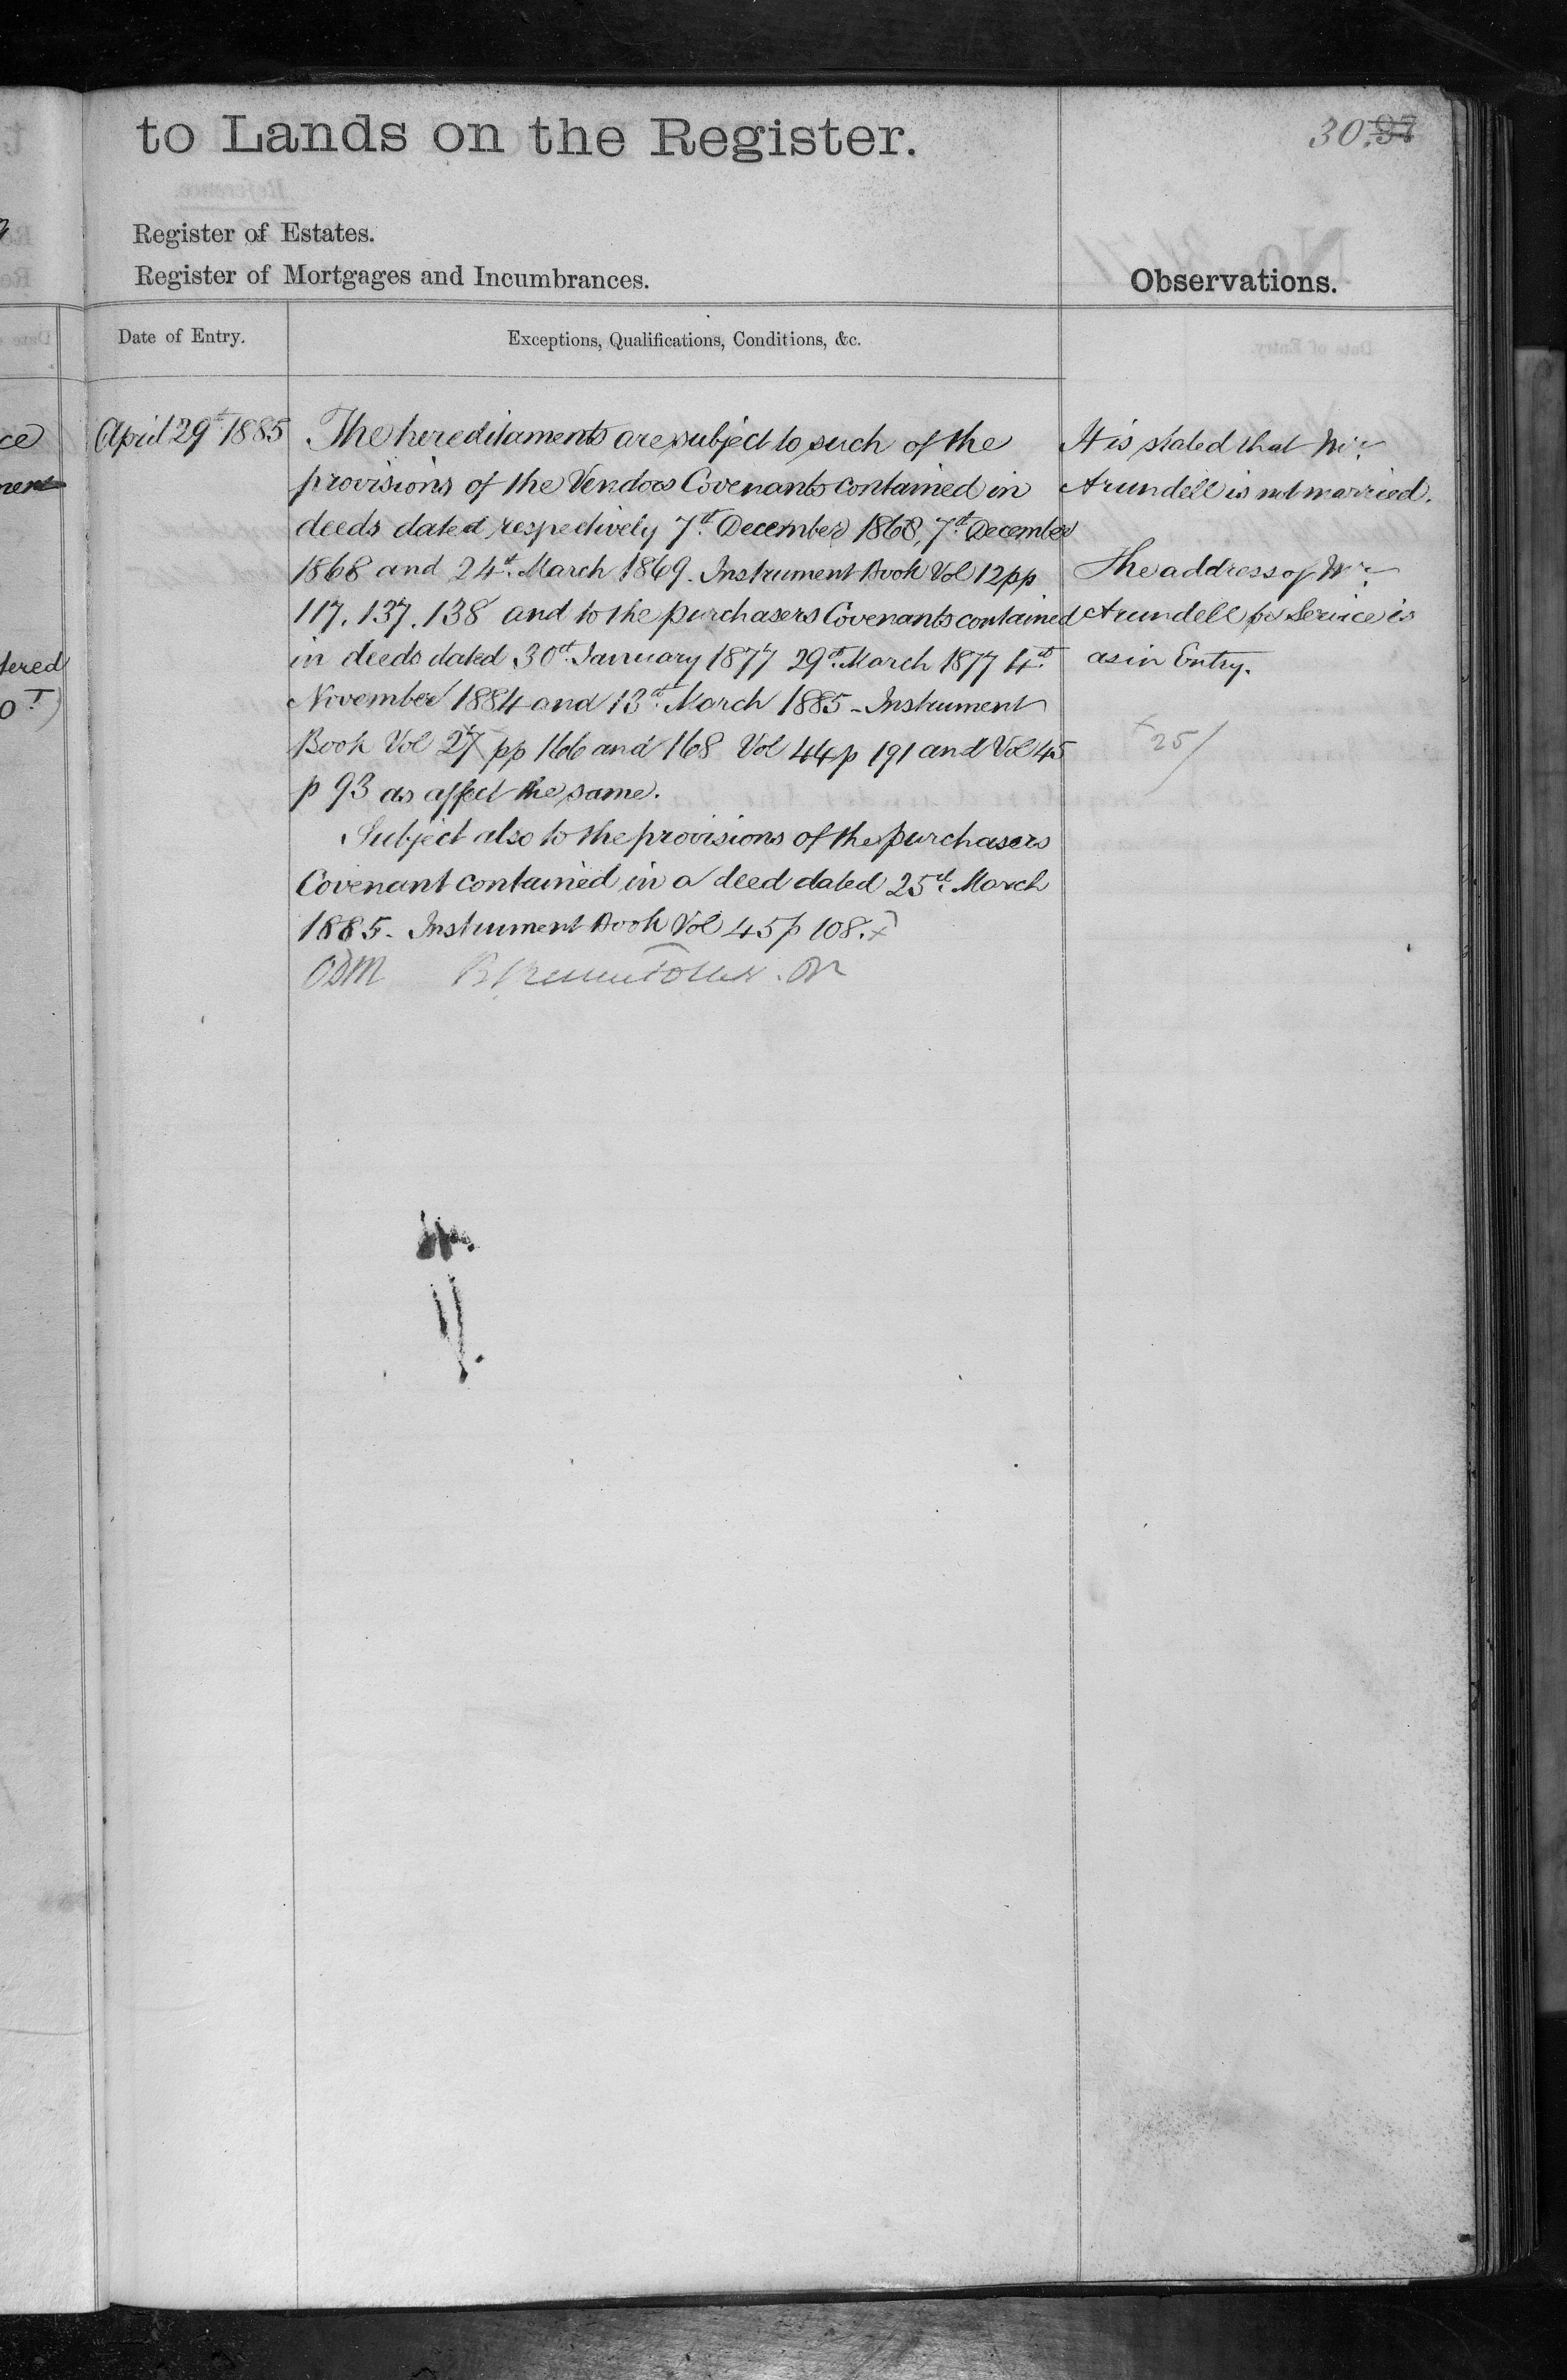 to Lands on the Register.
30. 97
Register of Estates.
Register of Mortgages and Incumbrances.
Observations.
Date of Entry.
Exceptions, Qualifications, Conditions, &c.
April 29th 1885
The hereditaments are subject to such of the
provisions of the Vendors Covenants contained in
deeds dated respectively 7th December 1868, 7th December
1868 and 24th March 1869. Instrument Book Vol 12 pp
117. 137. 138 and to the purchasers Covenants contained
in deeds dated 30th January 1877 29th March 1877 4th
November 1884 and 13th March 1885 - Instrument
Book Vol 27 pp 166 and 168 Vol 44 p 191 and Vol 45
p 93 as affect the same.
Subject also to the provisions of the purchasers
Covenant contained in a deed dated 25th March
1885 - Instrument Book Vol 45 p 108. x
ODM
It is stated that Mr.
Arundell is not married.
The address of Mr.
Arundell for Service is
as in Entry.
x 25/
ce
tered